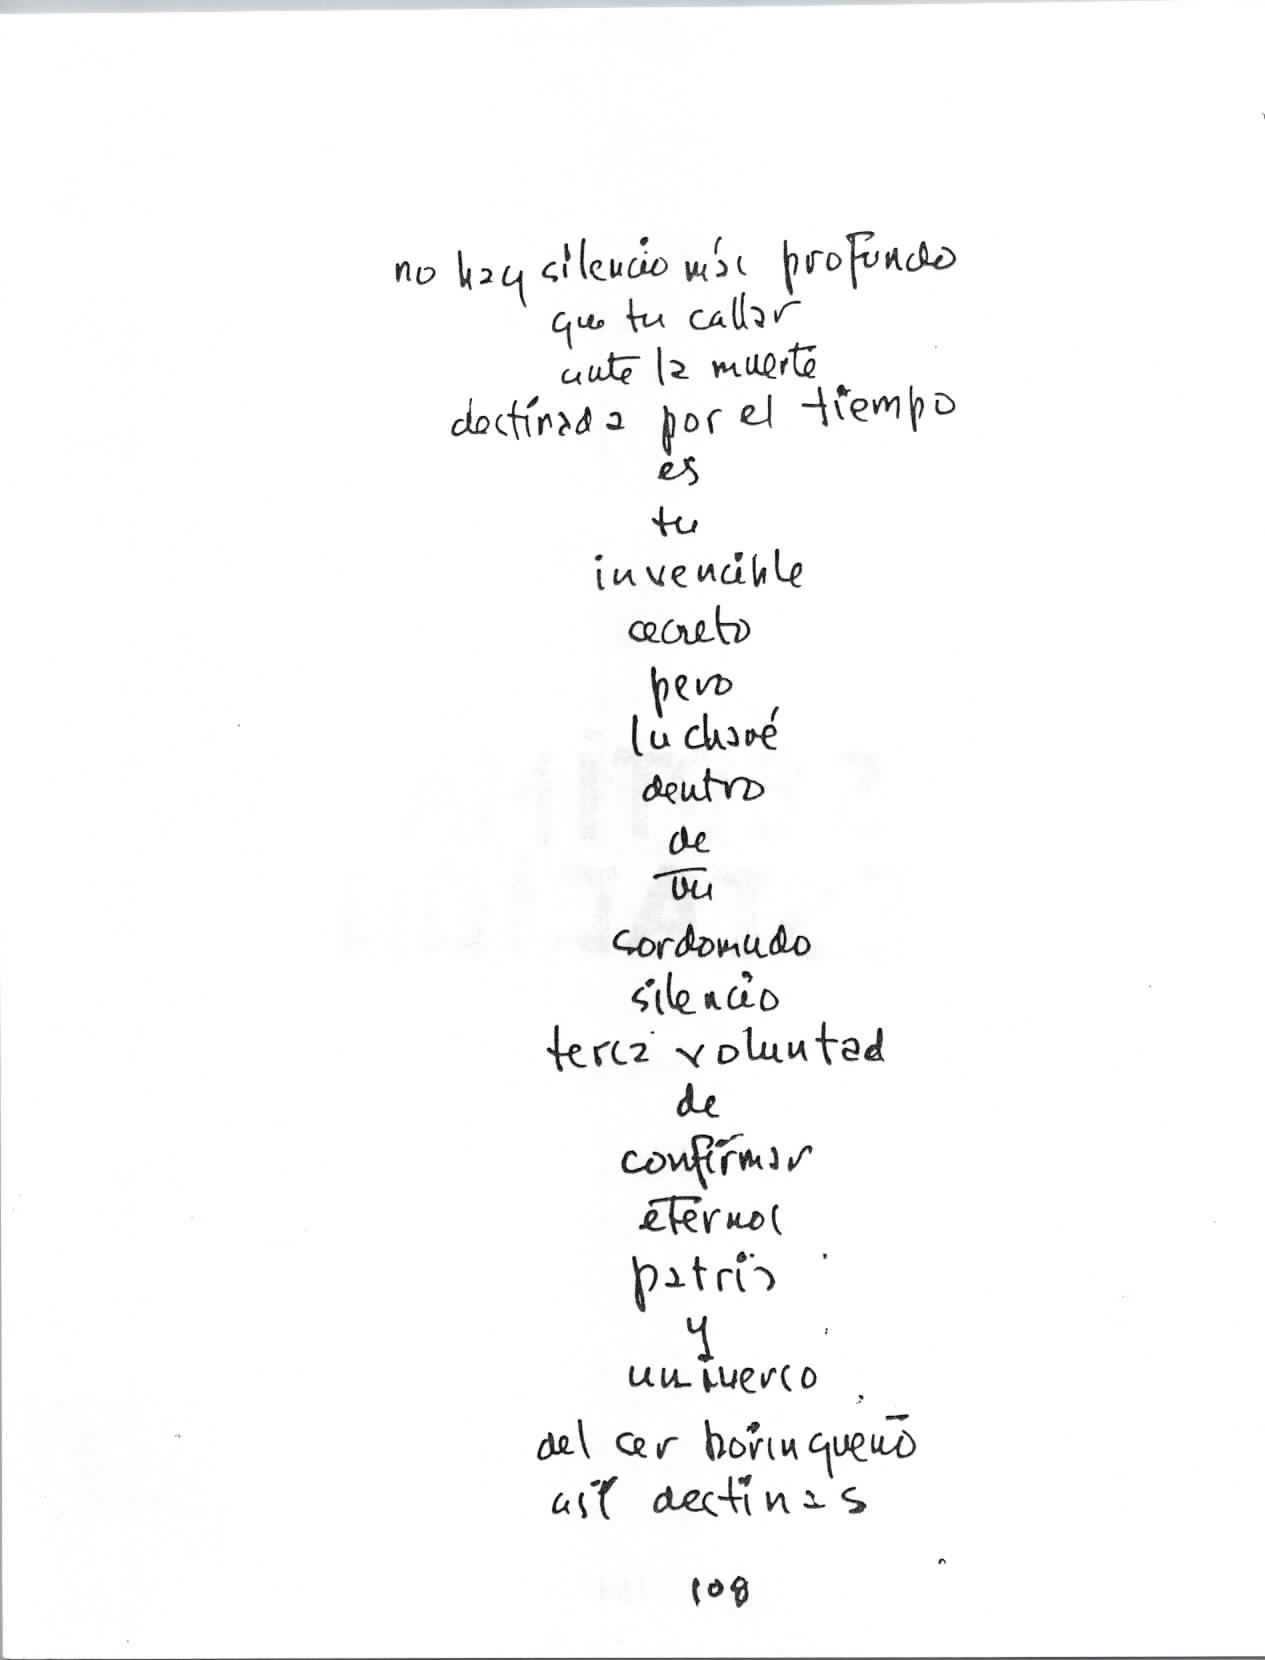 no hay silencio más profundo
que tu callar
ante la muerte
destinada por el tiempo
es
tu
invencible
secreto
pero
lucharé
dentro
de
tu
sordomudo
silencio
terca voluntad
de
confirmar
eternos
patria
y
universo
del ser borinqueño
así destinas
108